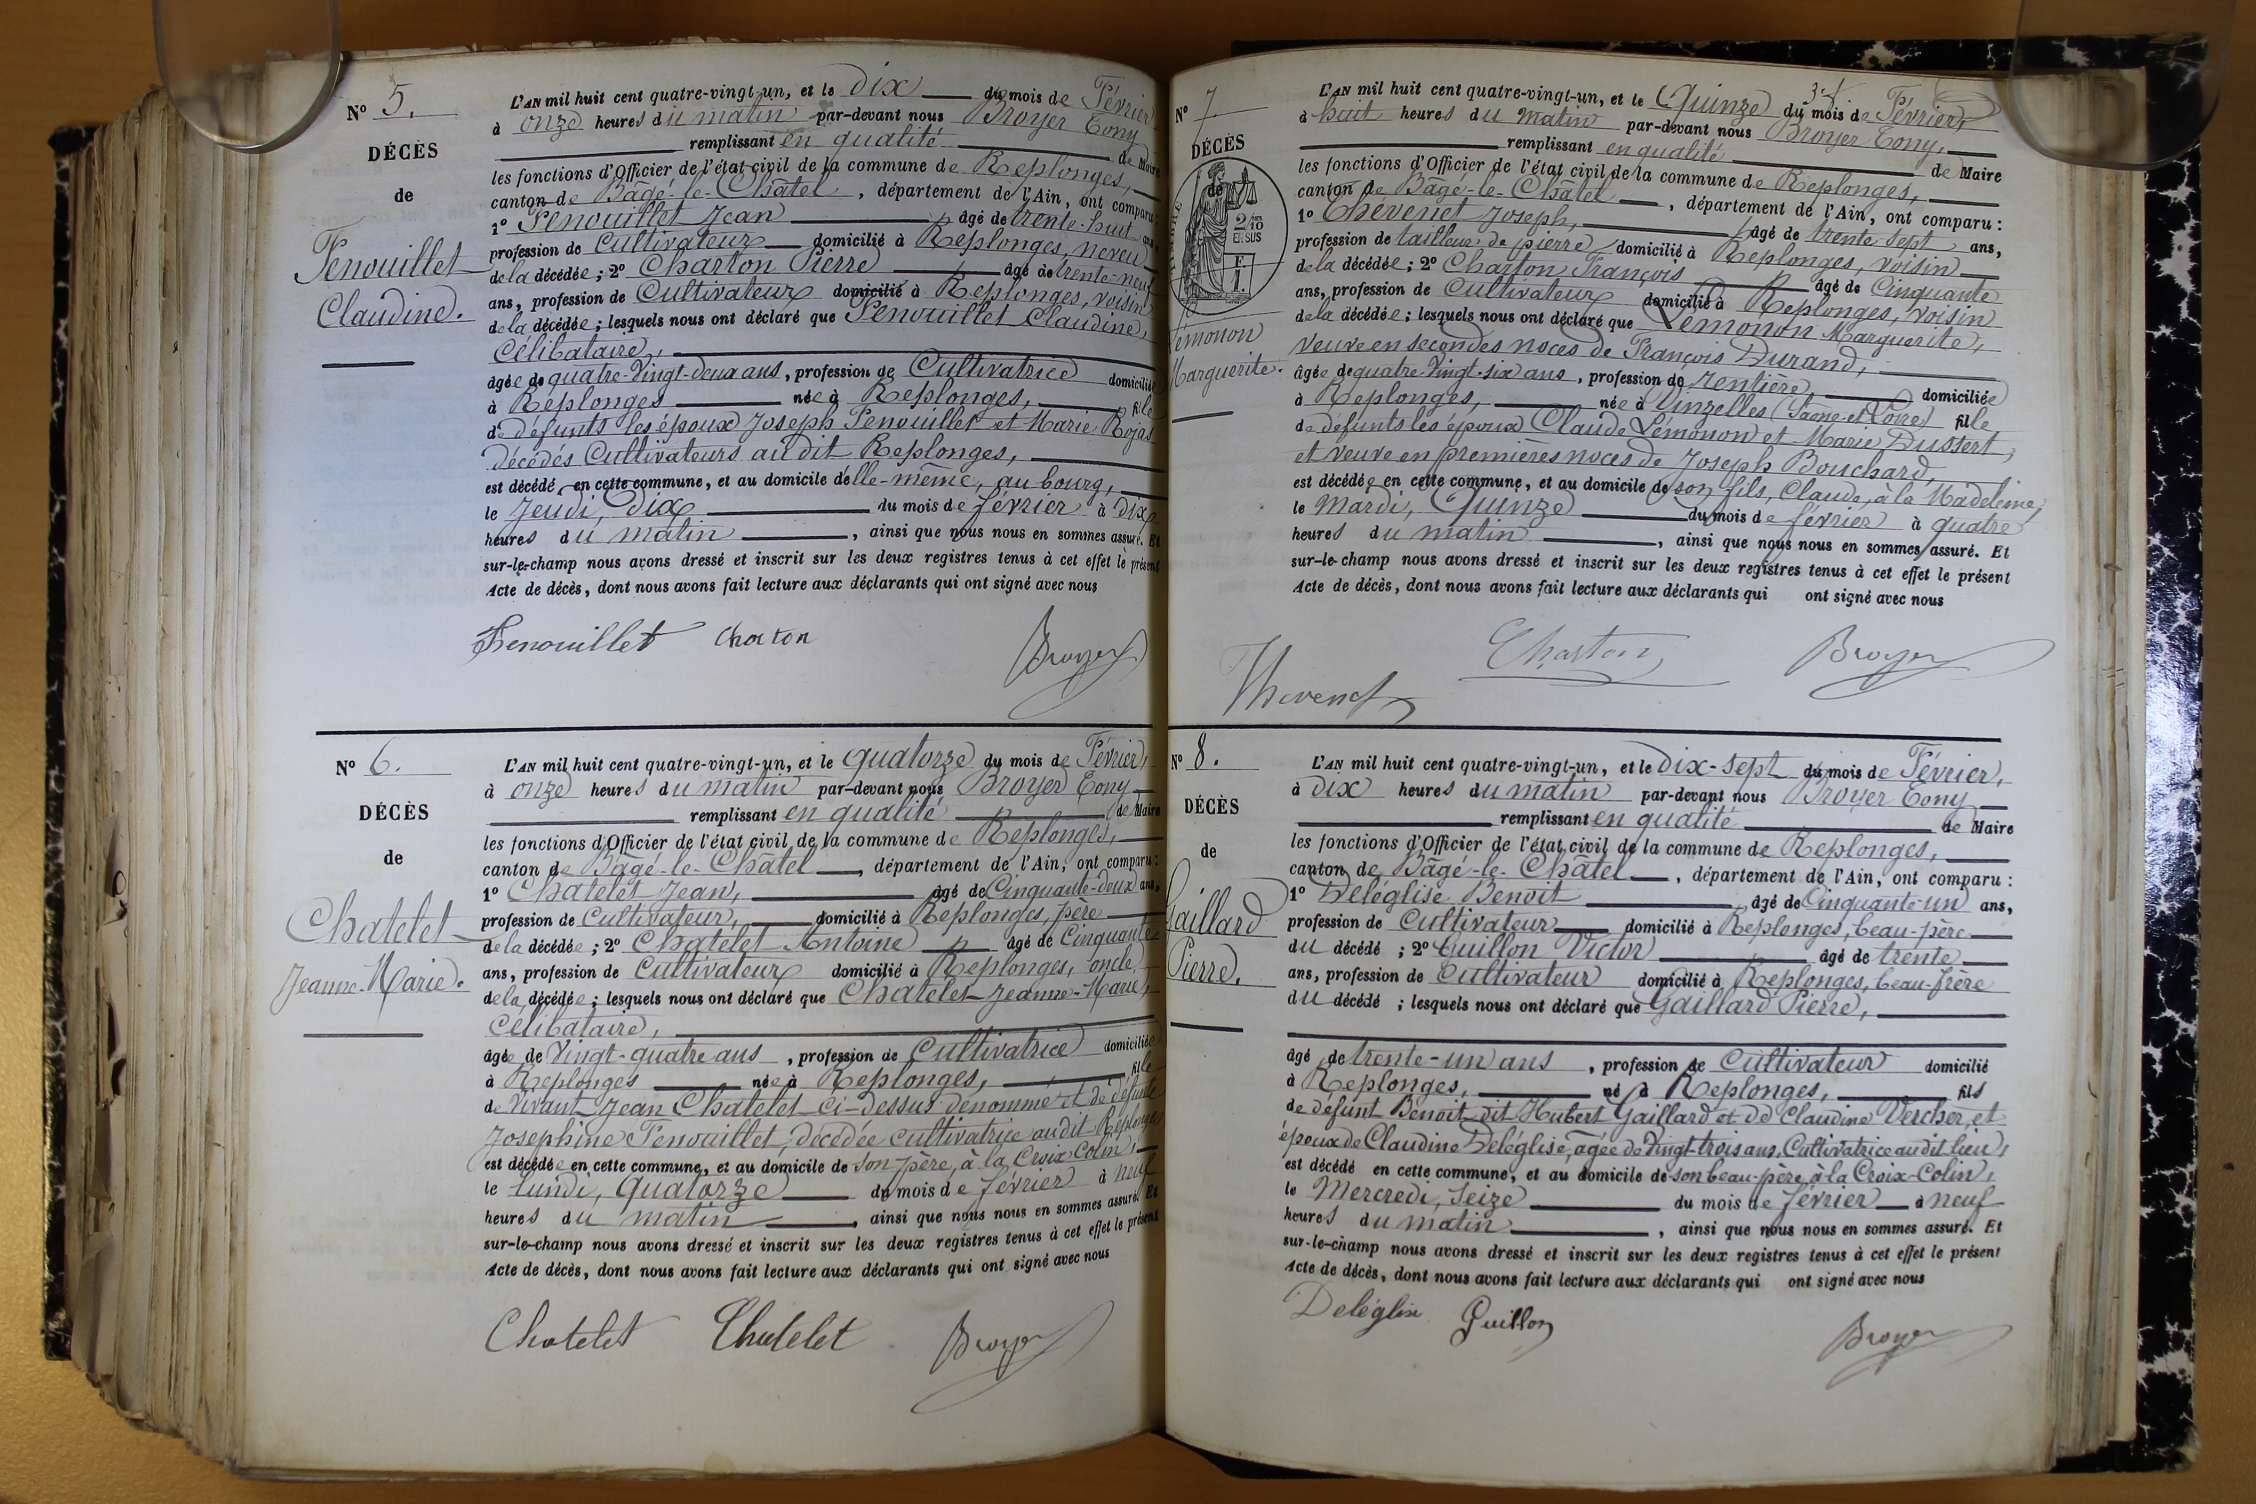 N° 5.
DÉCÈS
de
Fenouillet
Claudine.
L'AN mil huit cent quatre-vingt-un, et le dix du mois de Février
à onze heures du matin par-devant nous Broyer Tony
remplissant en qualité de Maire
les fonctions d'Officier de l'état civil de la commune de Replonges,
canton de Bâgé-le-Châtel, département de l'Ain, ont comparu :
1° Fenouillet Jean âgé de trente-huit ans,
profession de Cultivateur domicilié à Replonges, neveu
de la décédée ; 2° Charton Pierre âgé de trente-neuf
ans, profession de Cultivateur domicilié à Replonges, voisin
de la décédée ; lesquels nous ont déclaré que Fenouillet Claudine,
Célibataire,
âgée de quatre-vingt-deux ans, profession de Cultivatrice domiciliée
à Replonges née à Replonges, fille
de défunts les époux Joseph Fenouillet et Marie Rojas
décédés Cultivateurs audit Replonges,
est décédé en cette commune, et au domicile d'elle-même, au bourg,
le Jeudi, Dix du mois de février à dix
heures du matin, ainsi que nous nous en sommes assuré. Et
sur-le-champ nous avons dressé et inscrit sur les deux registres tenus à cet effet le présent
Acte de décès, dont nous avons fait lecture aux déclarants qui ont signé avec nous
Fenouillet Charton Broyer
N° 6.
DÉCÈS
de
Chatelet
Jeanne-Marie.
L'AN mil huit cent quatre-vingt-un, et le quatorze du mois de Février,
à onze heures du matin par-devant nous Broyer Tony
remplissant en qualité de Maire
les fonctions d'Officier de l'état civil de la commune de Replonges,
canton de Bâgé-le-Châtel, département de l'Ain, ont comparu :
1° Chatelet Jean, âgé de Cinquante-deux ans,
profession de Cultivateur, domicilié à Replonges, père
de la décédée ; 2° Chatelet Antoine âgé de Cinquante
ans, profession de Cultivateur domicilié à Replonges, oncle
de la décédée ; lesquels nous ont déclaré que Chatelet Jeanne-Marie,
Célibataire,
âgée de Vingt-quatre ans, profession de Cultivatrice domiciliée
à Replonges née à Replonges, fille
de vivant Jean Chatelet ci-dessus dénommé et de défunte
Josephine Fenouillet, décédée cultivatrice audit Replonges
est décédée en cette commune, et au domicile de son père, à la Croix-Colin,
le lundi, Quatorze du mois de février à neuf
heures du matin, ainsi que nous nous en sommes assuré. Et
sur-le-champ nous avons dressé et inscrit sur les deux registres tenus à cet effet le présent
Acte de décès, dont nous avons fait lecture aux déclarants qui ont signé avec nous
Chatelet Chatelet Broyer
N° 7
DÉCÈS
de
2/10
EN SUS
Lémonon
Marguerite.
L'AN mil huit cent quatre-vingt-un, et le Quinze du mois de Février,
à huit heures du matin par-devant nous Broyer Tony,
remplissant en qualité de Maire
les fonctions d'Officier de l'état civil de la commune de Replonges,
canton de Bâgé-le-Châtel, département de l'Ain, ont comparu :
1° Chevenet Joseph, âgé de trente sept ans,
profession de tailleur de pierre domicilié à Replonges, voisin
de la décédée ; 2° Charton François âgé de Cinquante
ans, profession de Cultivateur domicilié à Replonges, voisin
de la décédée ; lesquels nous ont déclaré que Lémonon Marguerite,
veuve en secondes noces de François Durand,
âgée de quatre-vingt-six ans, profession de rentière domiciliée
à Replonges, née à Vinzelles (Saone-et-Loire) fille
de défunts les époux Claude Lémonon et Marie Dussert,
et veuve en premières noces de Joseph Bouchard,
est décédée en cette commune, et au domicile de son fils, Claude, à la Madeleine,
le Mardi, Quinze du mois de février à quatre
heures du matin, ainsi que nous nous en sommes assuré. Et
sur-le-champ nous avons dressé et inscrit sur les deux registres tenus à cet effet le présent
Acte de décès, dont nous avons fait lecture aux déclarants qui ont signé avec nous
Thevenet Charton Broyer
N° 8.
DÉCÈS
de
Gaillard
Pierre.
L'AN mil huit cent quatre-vingt-un, et le dix-sept du mois de Février,
à dix heures du matin par-devant nous Broyer Tony
remplissant en qualité de Maire
les fonctions d'Officier de l'état civil de la commune de Replonges,
canton de Bâgé-le-Châtel, département de l'Ain, ont comparu :
1° Deléglise Benoit âgé de Cinquante-un ans,
profession de Cultivateur domicilié à Replonges, beau-père
du décédé ; 2° Guillon Victor âgé de trente
ans, profession de Cultivateur domicilié à Replonges, beau-frère
du décédé ; lesquels nous ont déclaré que Gaillard Pierre,
âgé de trente-un ans, profession de Cultivateur domicilié
à Replonges, né à Replonges, fils
de défunt Benoit dit Hubert Gaillard et de Claudine Vercher, et
époux de Claudine Deléglise, âgée de Vingt-trois ans, Cultivatrice audit lieu,
est décédé en cette commune, et au domicile de son beau-père, à la Croix-Colin,
le Mercredi, Seize du mois de février à neuf
heures du matin, ainsi que nous nous en sommes assuré. Et
sur-le-champ nous avons dressé et inscrit sur les deux registres tenus à cet effet le présent
Acte de décès, dont nous avons fait lecture aux déclarants qui ont signé avec nous
Deléglise Guillon Broyer